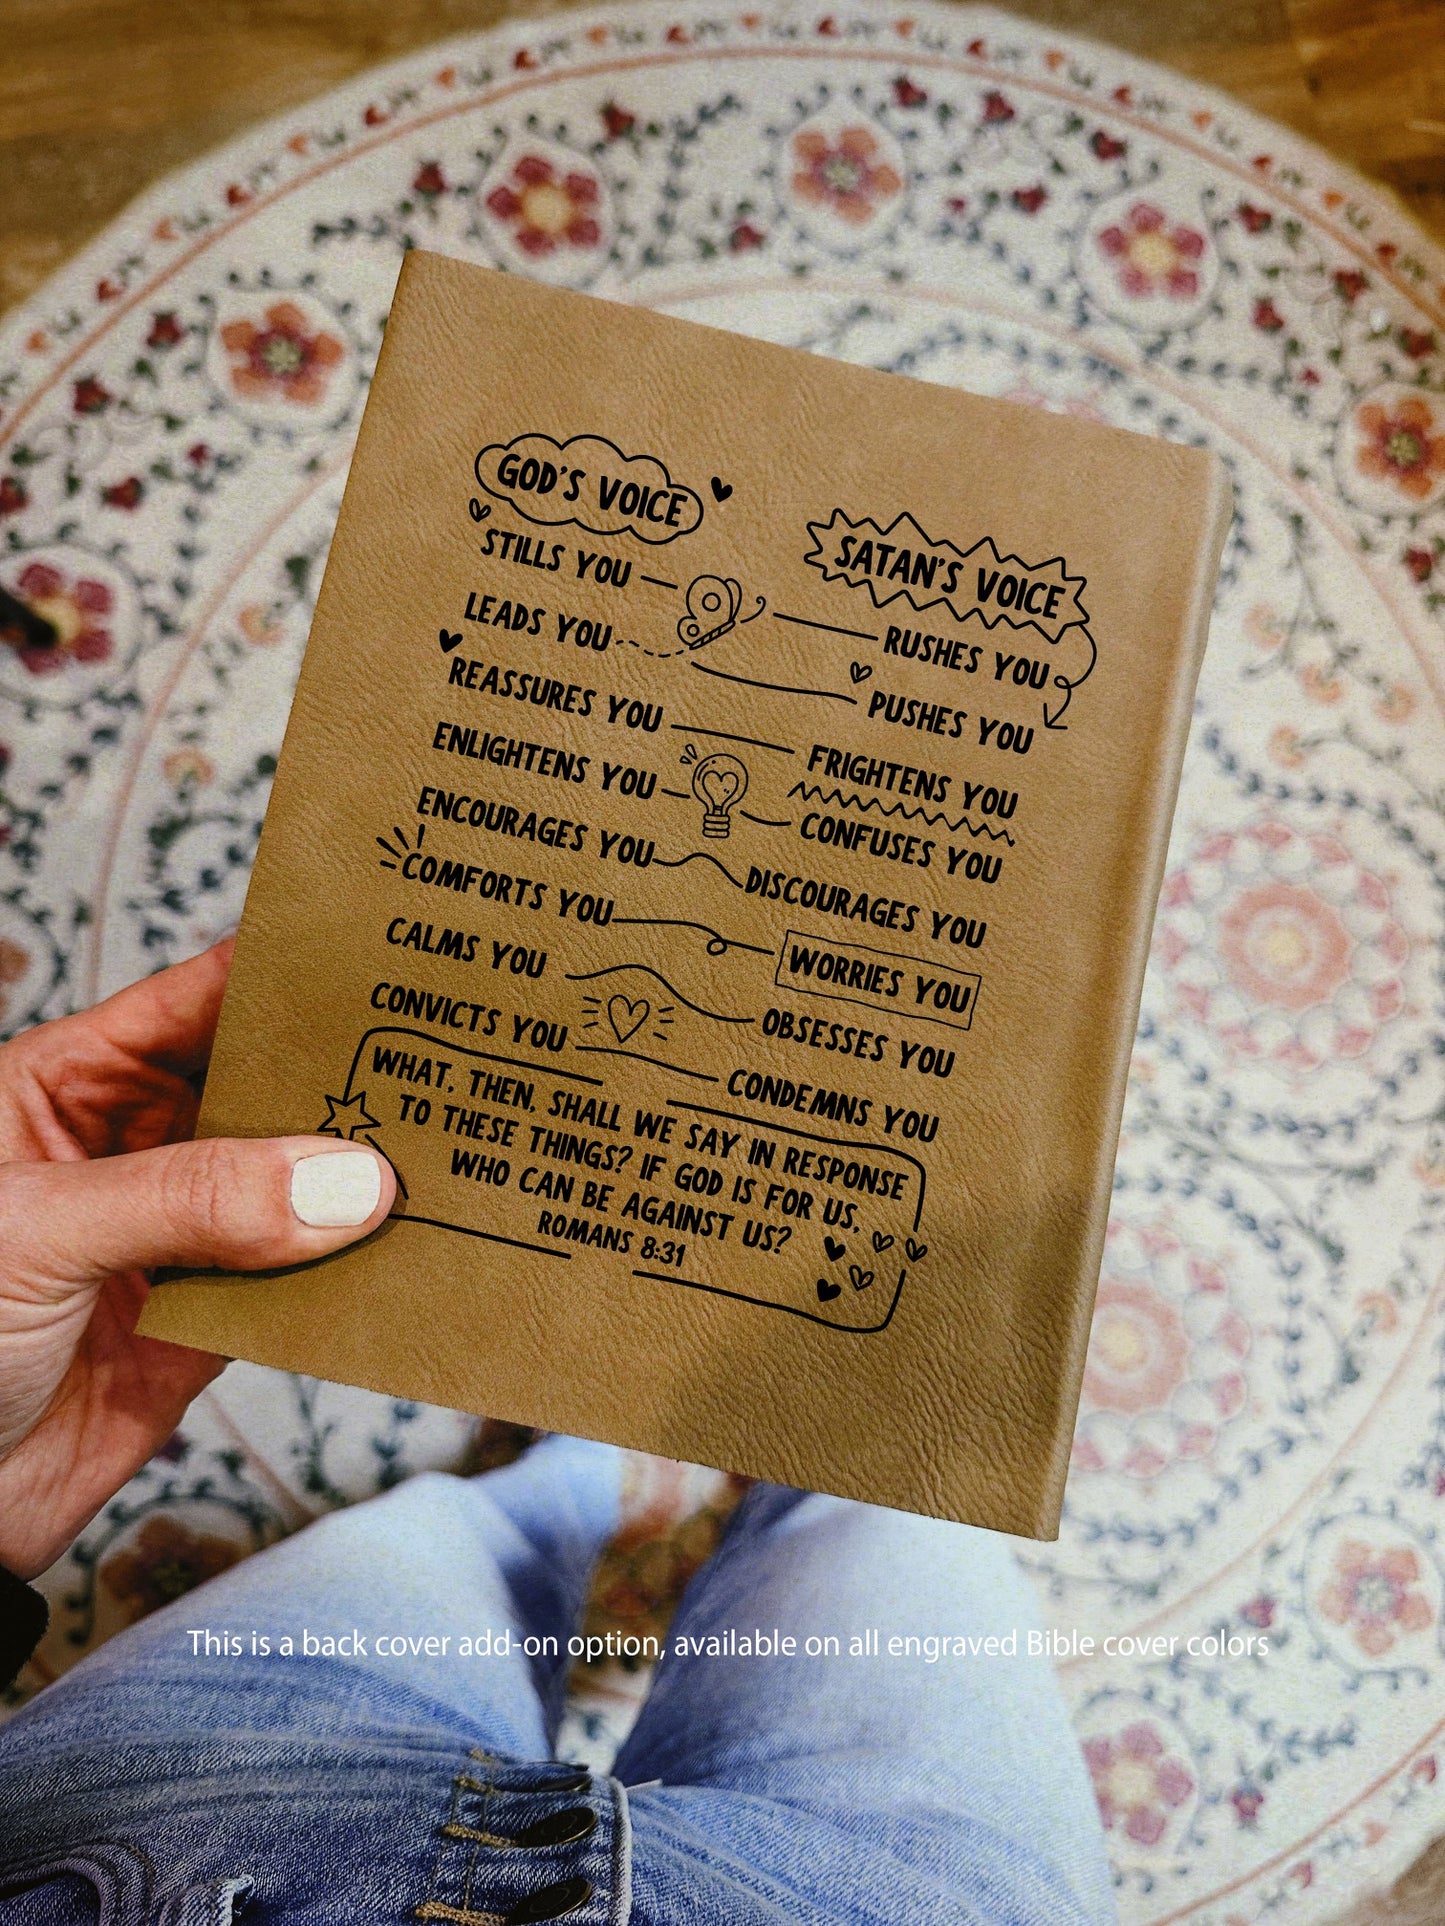 GOD'S VOICE
STILLS YOU
LEADS YOU
REASSURES YOU
ENLIGHTENS YOU
ENCOURAGES YOU
COMFORTS YOU
CALMS YOU
CONVICTS YOU
SATAN'S VOICE
RUSHES YOU
PUSHES YOU
FRIGHTENS YOU
CONFUSES YOU
DISCOURAGES YOU
WORRIES YOU
OBSESSES YOU
CONDEMNS YOU
WHAT, THEN, SHALL WE SAY IN RESPONSE
TO THESE THINGS? IF GOD IS FOR US,
WHO CAN BE AGAINST US?
ROMANS 8:31
This is a back cover add-on option, available on all engraved Bible cover colors